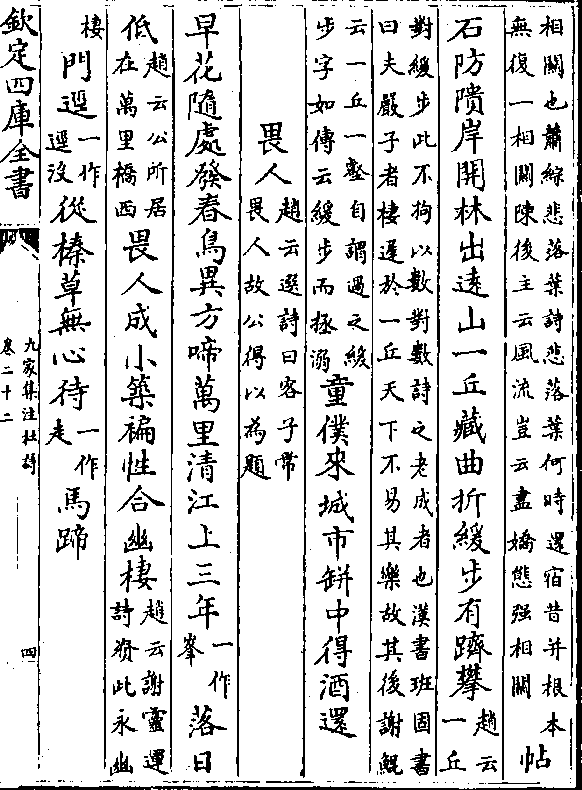 相關也蕭綜悲落葉詩悲落葉何時還宿昔并根本
無復一相關陳後主云風流豈云盡嬌態强相關 帖
石防隤岸開林出遠山一丘藏曲折緩步有躋攀
趙云
一丘
對緩步此不拘以數對數詩之老成者也漢書班固書
曰夫嚴子者棲遲於一丘天下不易其樂故其後謝鯤
云一丘一壑自謂過之緩
步字如傳云緩步而拯溺
童僕來城市缾中得酒還
畏人
趙云選詩曰客子常
畏人故公得以為題
早花隨處發春鳥異方啼萬里清江上三年
一作
峯
落日
低
趙云公所居
在萬里橋西
畏人成小築褊性合幽棲
趙云謝靈運
詩資此永幽
棲
門逕
一作
逕沒
從榛草無心待
一作
走
馬蹄
欽定四庫全書
九家集注杜詩
卷二十二
四